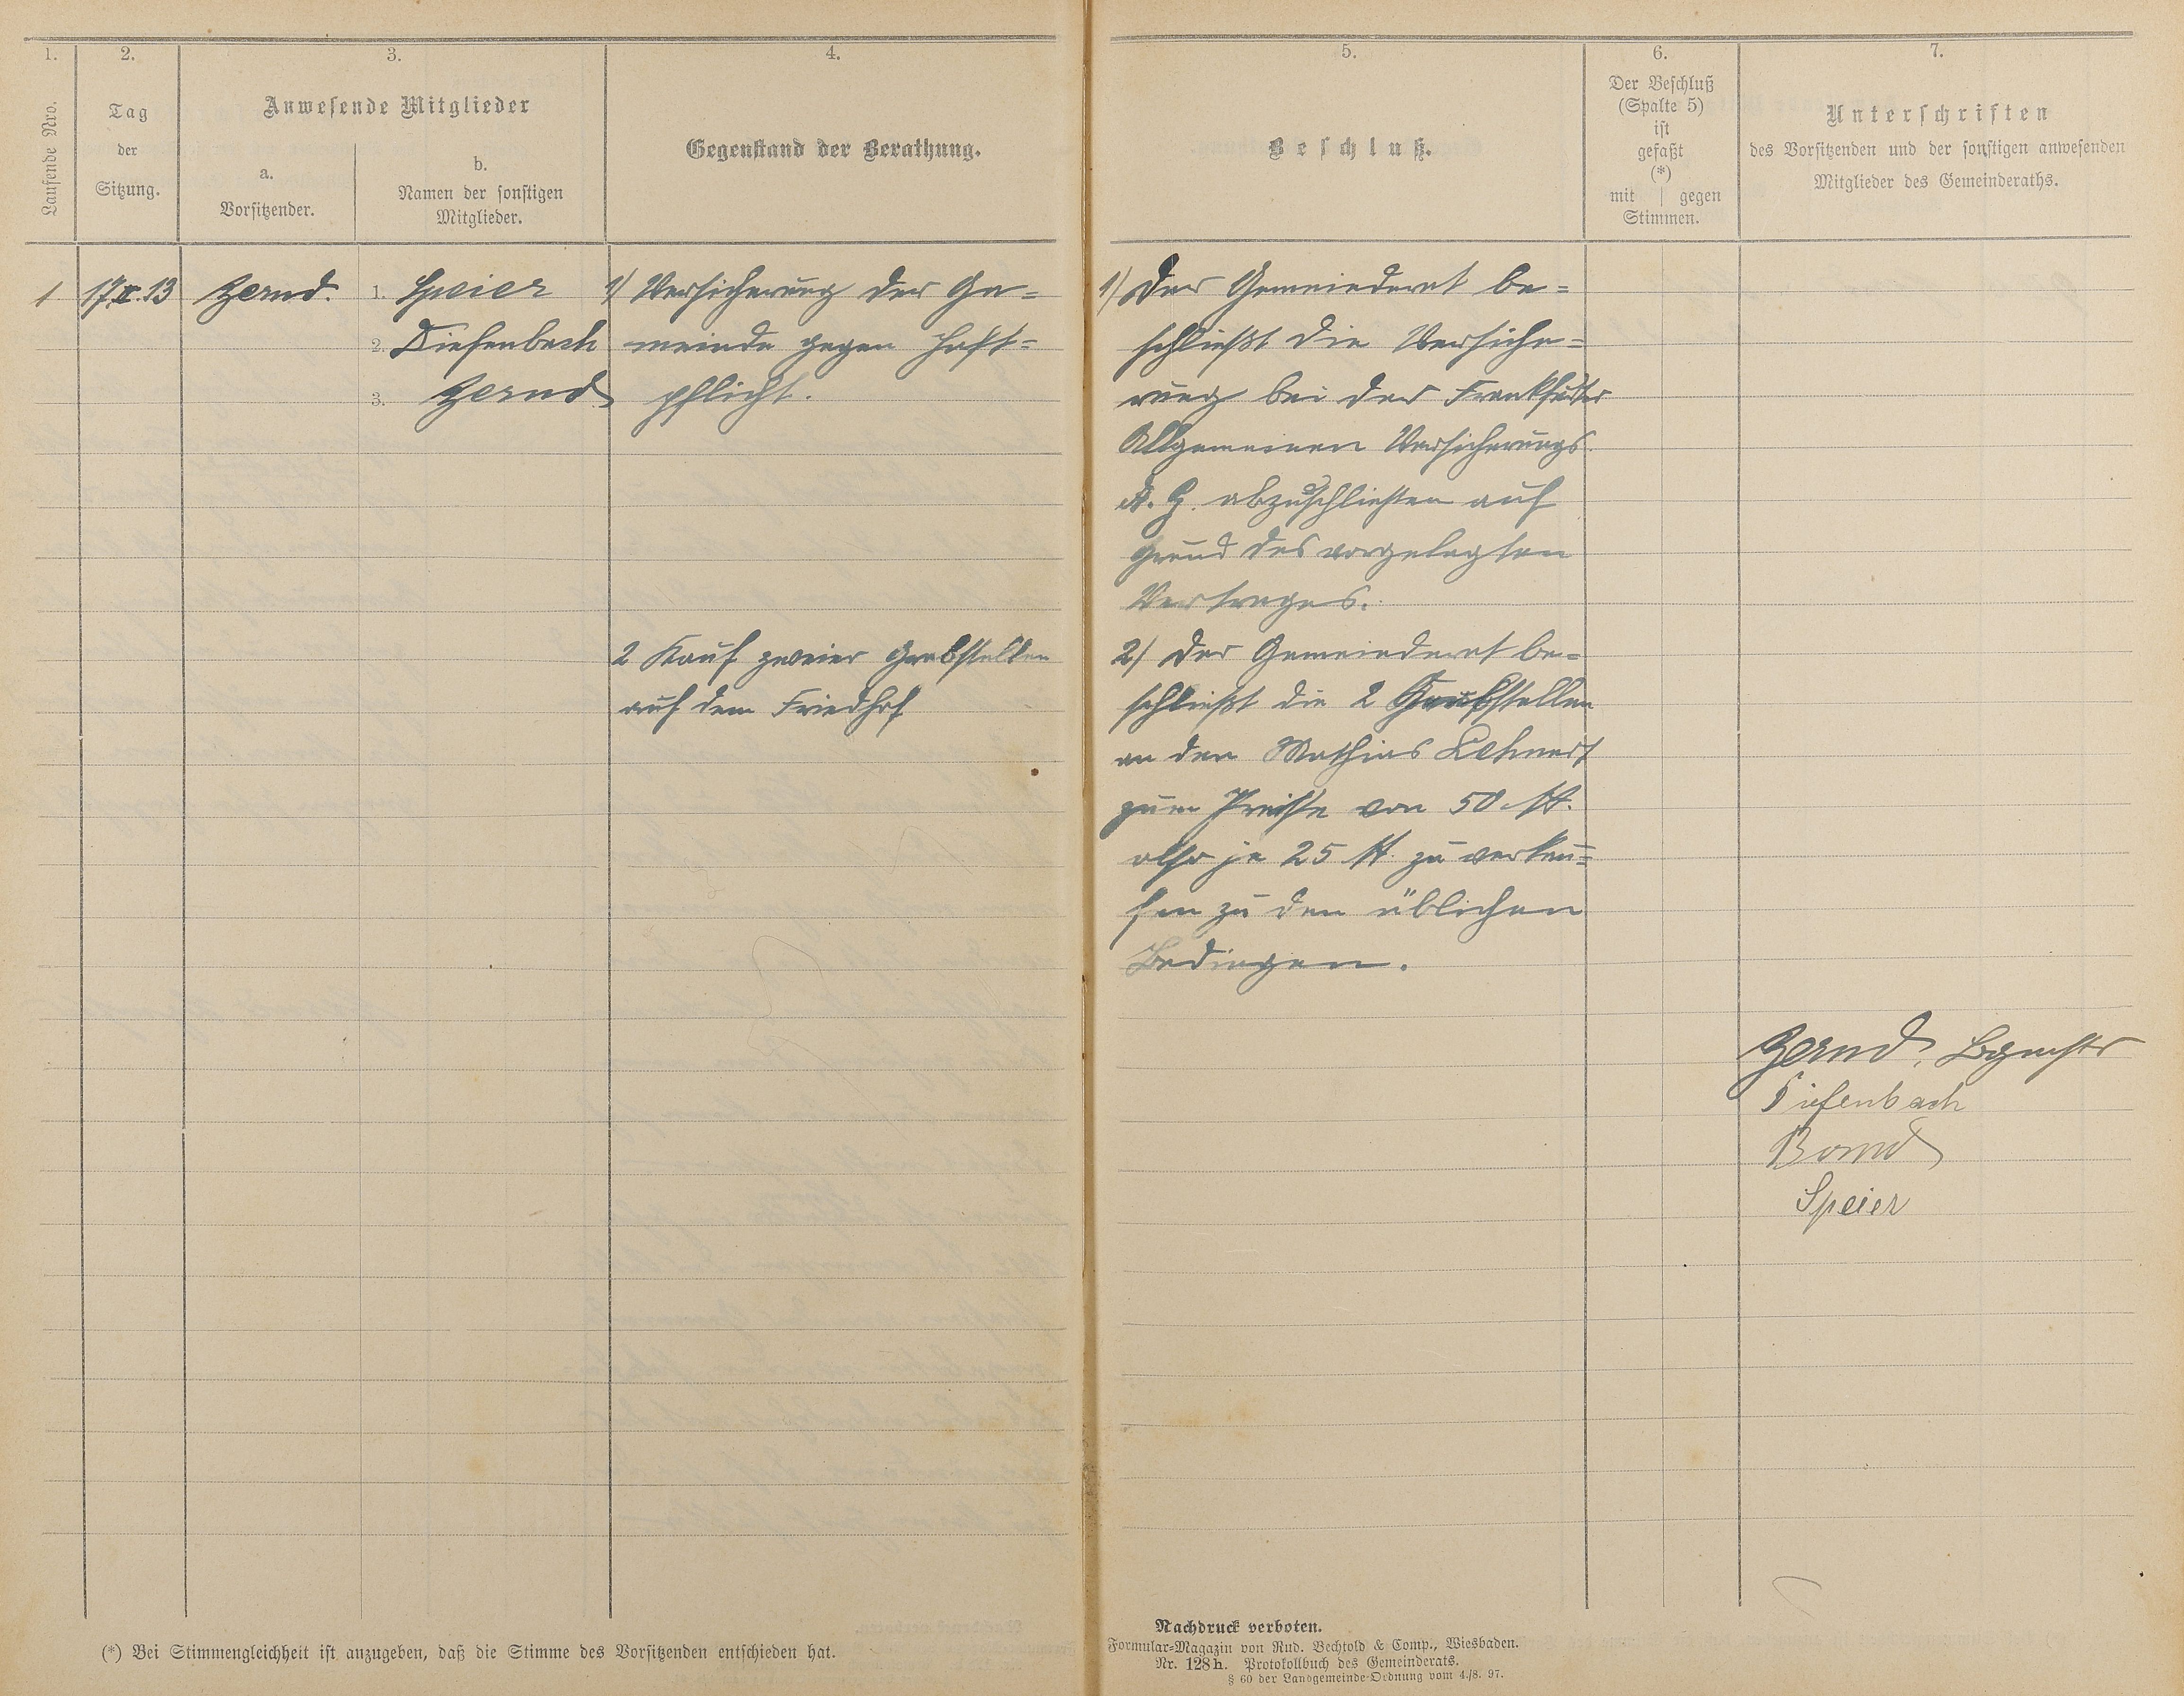 1.
2.
3.
4.
Laufende Nro.
Tag
der
Sitzung.
Anwesende Mitglieder
a.
Vorsitzender.
b.
Namen der sonstigen
Mitglieder.
Gegenstand der Berathung.
1
17.II.13
Zernd.
1. Speier
2. Diefenbach
3. Zernd
1) Versicherung der Ge=
meinde gegen Haft=
pflicht.
2 Kauf zweier Grabstellen
auf dem Friedhof
(*) Bei Stimmengleichheit ist anzugeben, daß die Stimme des Vorsitzenden entschieden hat.
5.
6.
7.
Beschluß.
Der Beschluß
(Spalte 5)
ist
gefaßt
(*)
mit | gegen
Stimmen.
Unterschriften
des Vorsitzenden und der sonstigen anwesenden
Mitglieder des Gemeinderaths.
1) Der Gemeinderat be=
schließt die Versiche=
rung bei der Frankfurter
Allgemeinen Versicherungs
A. G. abzuschließen auf
Grund des vorgelegten
Vertrages.
2) Der Gemeinderat be=
schließt die 2 Grabstellen
an den Mathias Lehnert
zum Preise von 50 M.
also je 25 M. zu verkau=
fen zu den üblichen
Bedingen.
Zernd,
Diefenbach
Bornd
Speier
Nachdruck verboten.
Formular=Magazin von Rud. Bechtold & Comp., Wiesbaden.
Nr. 128h. Protokollbuch des Gemeinderats.
§ 60 der Landgemeinde=Ordnung vom 4./8. 97.